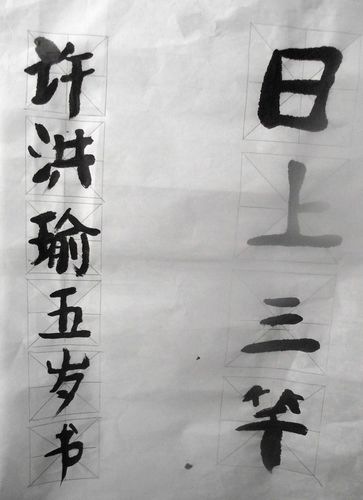 日上三竿
许洪瑜五岁书